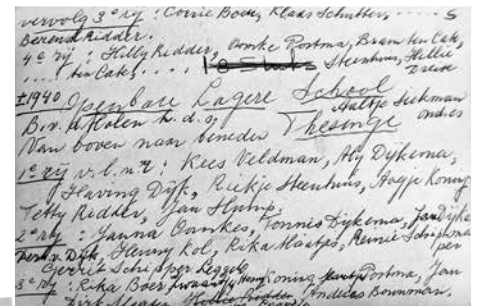 vervolg 3e rij: Corrie Boer, Klaas Schutter, ..... S
Berend Ridder.
4e rij: Hilly Ridder, Oomke Postma, Bram ten Cate,
.... ten Cate, .... Steenhuis, Hillie
Dreise
±1940 Openbare Lagere School
B.v.d. Molen h.d.s. Aaltje Siekman
Van boven naar beneden Thesinge ond.es
1e rij v.l.n.r: Kees Veldman, Aly Dijkema,
Having Dijk, Riekje Steenhuis, Aagje Koning
Tetty Ridder, Jan
2e rij: Janna Oomkes, Tonnis Dijkema, Jan Dijk
Derk v. Dijk, Henny Kol, Rika Maatje, Reinie
Gerrit Schipper
3e rij: Rika Boer, Koning Postma, Jan
Andries Bouwman,